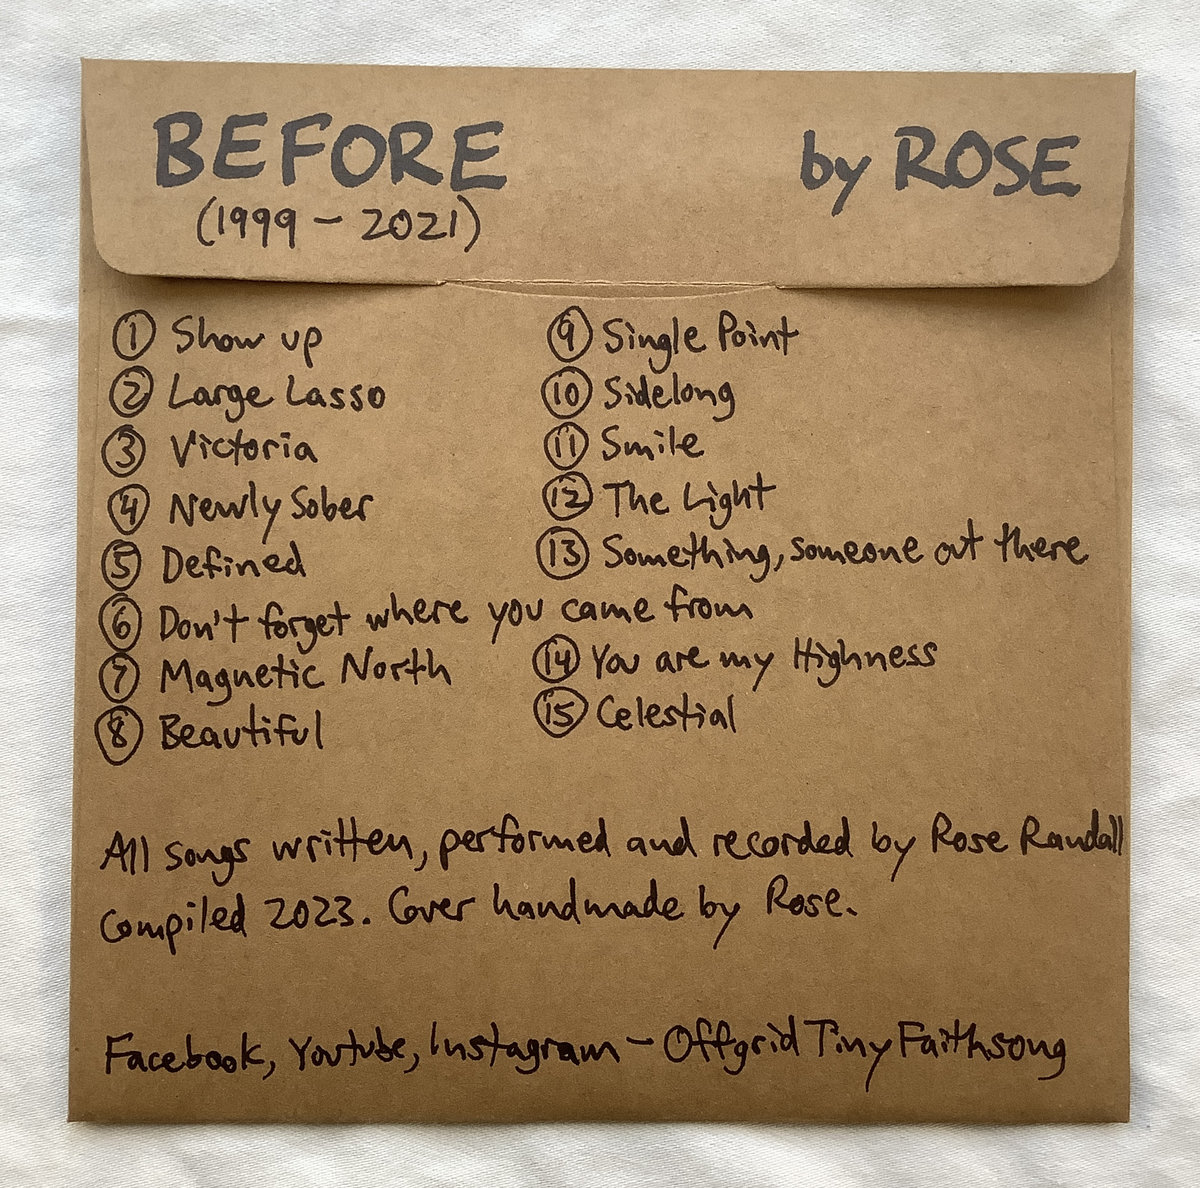 BEFORE
(1999 - 2021)
by ROSE
① Show up
② Large Lasso
③ Victoria
④ Newly Sober
⑤ Defined
⑥ Don't forget where you came from
⑦ Magnetic North
⑧ Beautiful
⑨ Single Point
⑩ Sidelong
⑪ Smile
⑫ The Light
⑬ Something, someone out there
⑭ You are my Highness
⑮ Celestial
All songs written, performed and recorded by Rose Randall
Compiled 2023. Cover handmade by Rose.
Facebook, Youtube, Instagram - Offgrid Tiny Faithsong